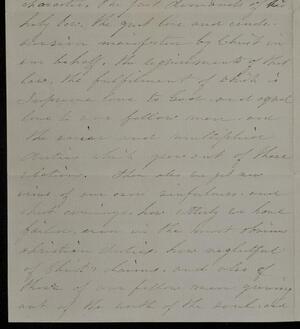 character. The just demands of his
holy law. The great love and conde-
scension manifested by Christ in
our behalf. The requirements of that
law, the fulfilment of which is
Supreme love to God, and equal
love to our fellow men, and
the various and multiplied
duties which grow out of those
relations. Then also we get new
views of our own sinfulness, and
short comings, how utterly we have
failed, even in the most obvious
christian duties, how neglectful
of Christ's claims, and also of
those of our fellow men, growing
out of the worth of the soul, and